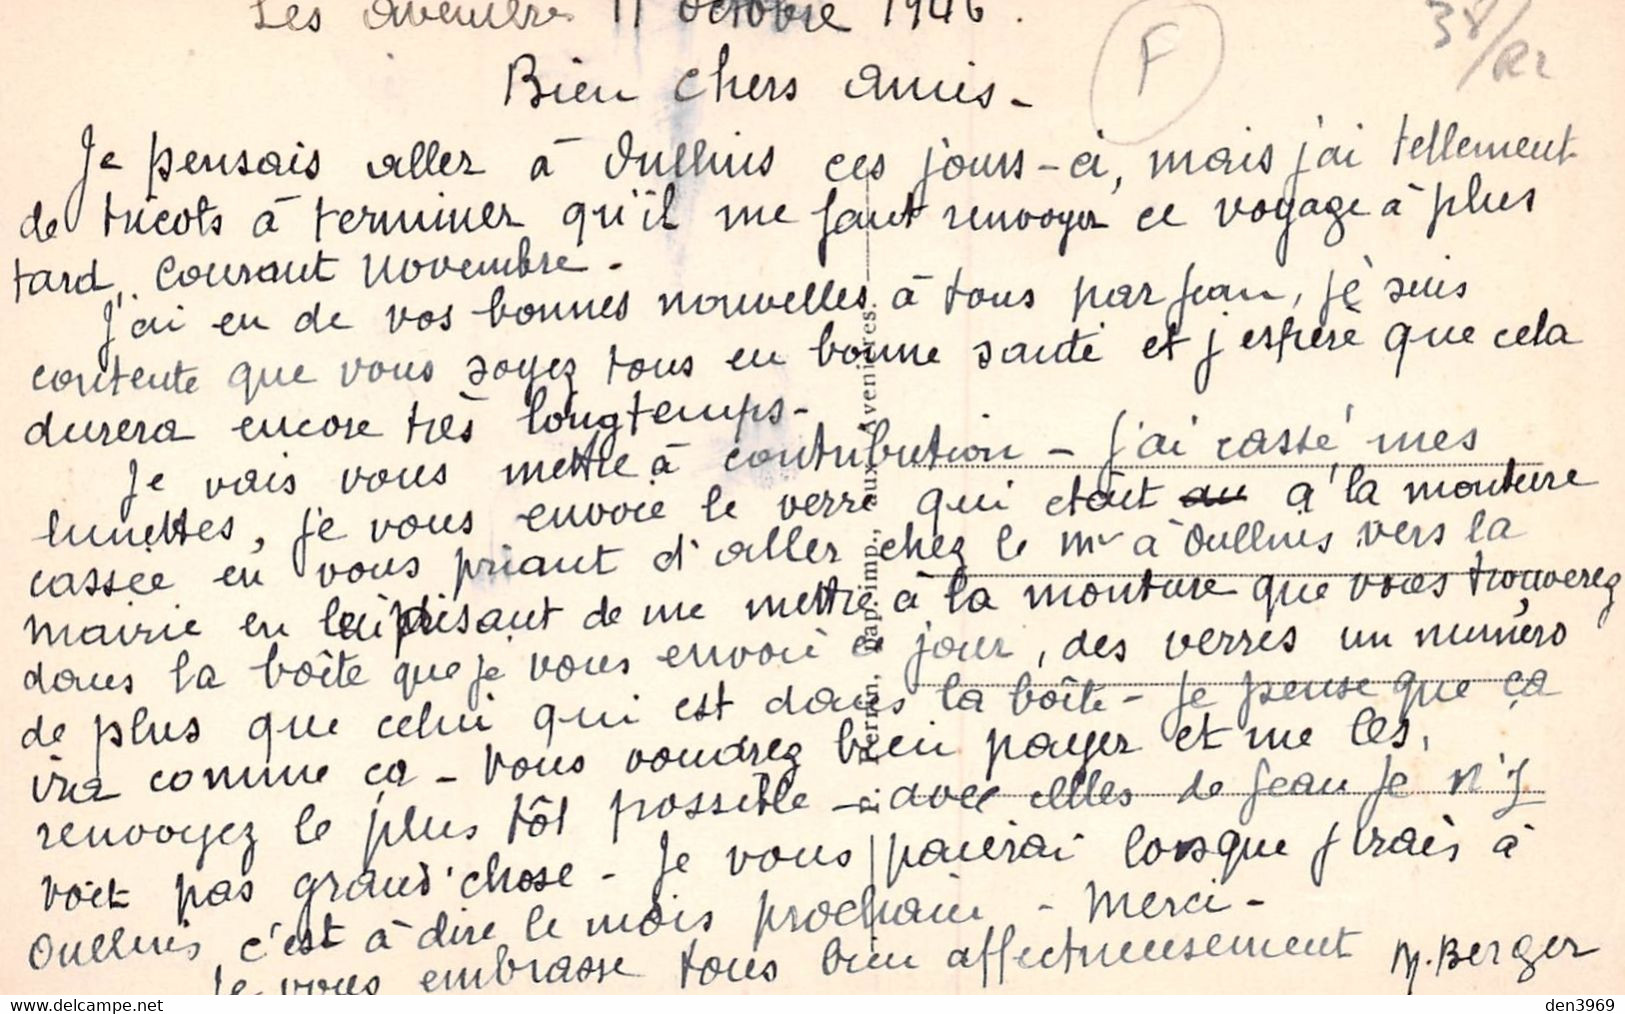 Les Avenières 11 octobre 1946.
F
38/R2
Bien chers amis -
Je pensais aller à Oullins ces jours-ci, mais j'ai tellement
de tricots à terminer qu'il me faut renvoyer ce voyage à plus
tard, courant novembre -
J'ai eu de vos bonnes nouvelles à tous par Jean, je suis
contente que vous soyez tous en bonne santé et j'espère que cela
durera encore très longtemps -
Je vais vous mettre à contribution - J'ai cassé mes
lunettes, je vous envoie le verre qui était à la monture
cassée en vous priant d'aller chez le Mr à Oullins vers la
mairie en lui disant de me mettre à la monture que vous trouverez
dans la boîte que je vous envoie ce jour, des verres un numéro
de plus que celui qui est dans la boîte - Je pense que ça
ira comme ça - Vous voudrez bien payer et me les
renvoyez le plus tôt possible - avec celles de Jean je n'y
voit pas grand'chose - Je vous paierai lorsque j'irais à
Oullins, c'est à dire le mois prochain - Merci -
Je vous embrasse tous bien affectueusement M. Berger
Perrin, pap. imp., aux Avenières.
www.delcampe.net
den3969